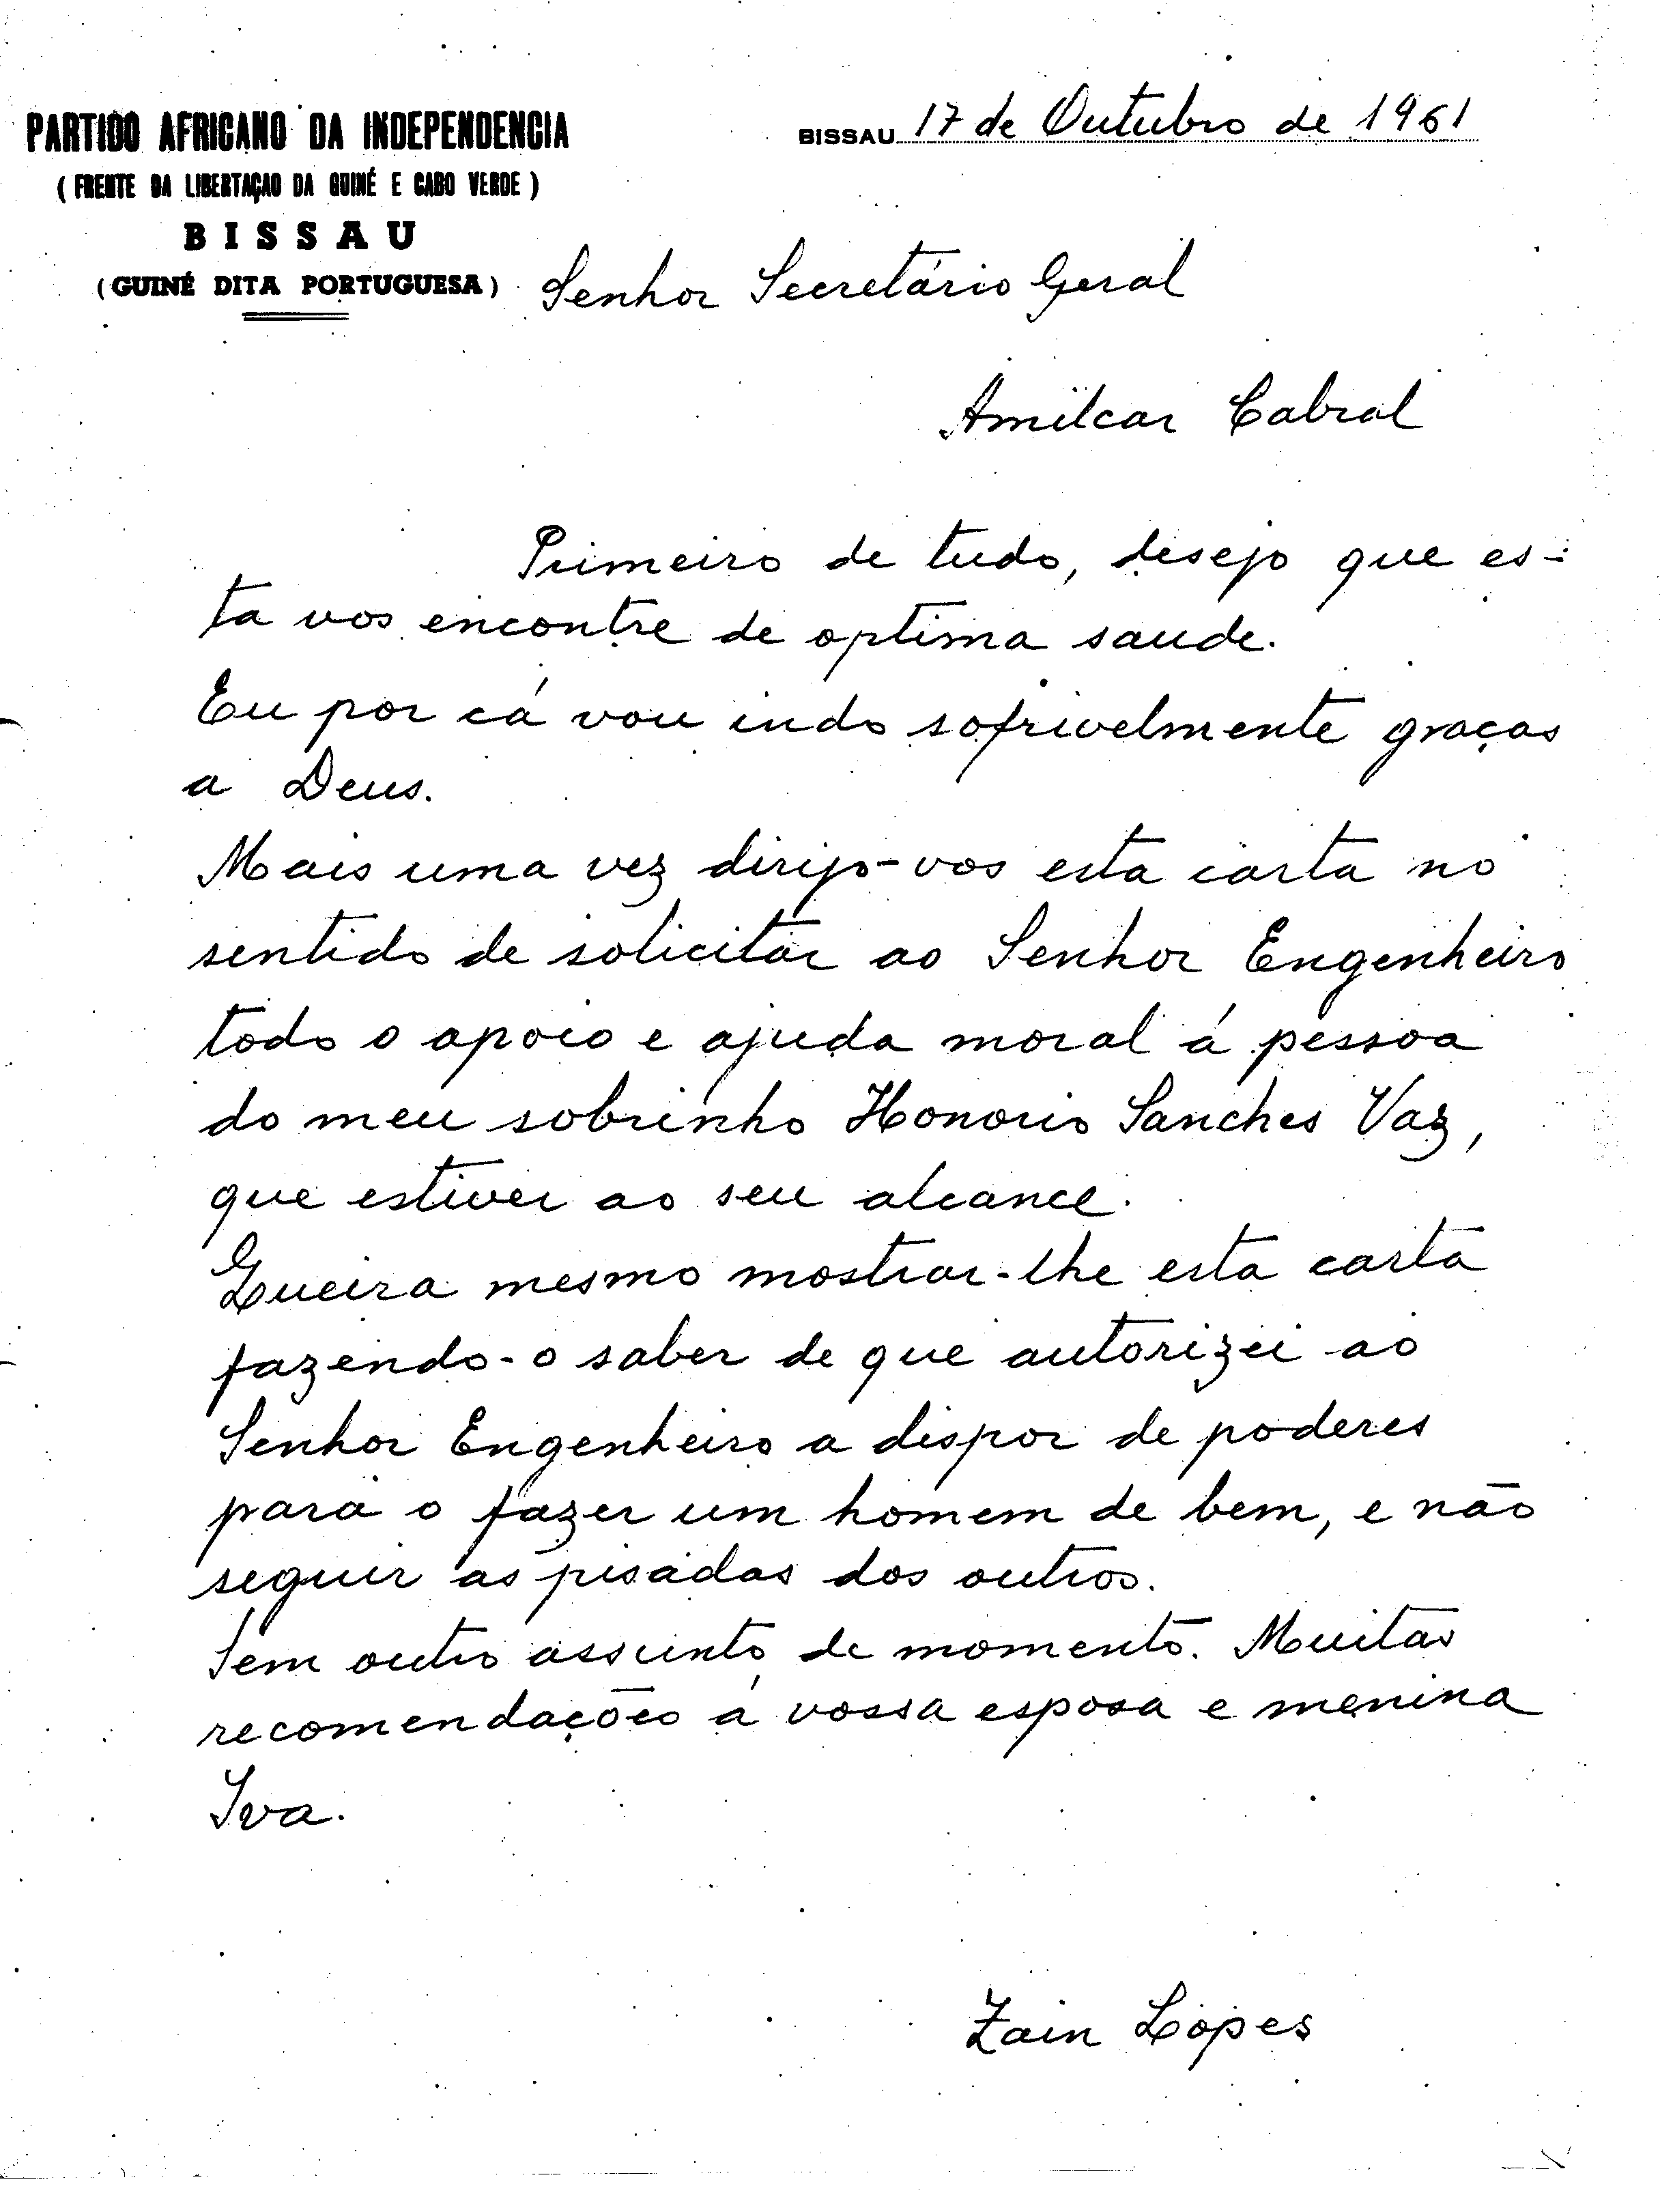 PARTIDO AFRICANO DA INDEPENDENCIA
(FRENTE DA LIBERTAÇAO DA GUINÉ E CABO VERDE)
BISSAU
(GUINÉ DITA PORTUGUESA)
BISSAU 17 de Outubro de 1961
Senhor Secretário Geral
Amilcar Cabral
Primeiro de tudo, desejo que es-
ta vos encontre de optima saude.
Eu por cá vou indo sofrivelmente graças
a Deus.
Mais uma vez dirijo-vos esta carta no
sentido de solicitar ao Senhor Engenheiro
todo o apoio e ajuda moral á pessoa
do meu sobrinho Honorio Sanches Vaz,
que estiver ao seu alcance.
Queira mesmo mostrar-lhe esta carta
fazendo-o saber de que autorizei ao
Senhor Engenheiro a dispor de poderes
para o fazer um homem de bem, e não
seguir as pisadas dos outros.
Sem outro assunto de momento. Muitas
recomendações á vossa esposa e menina
Iva.
Zain Lopes